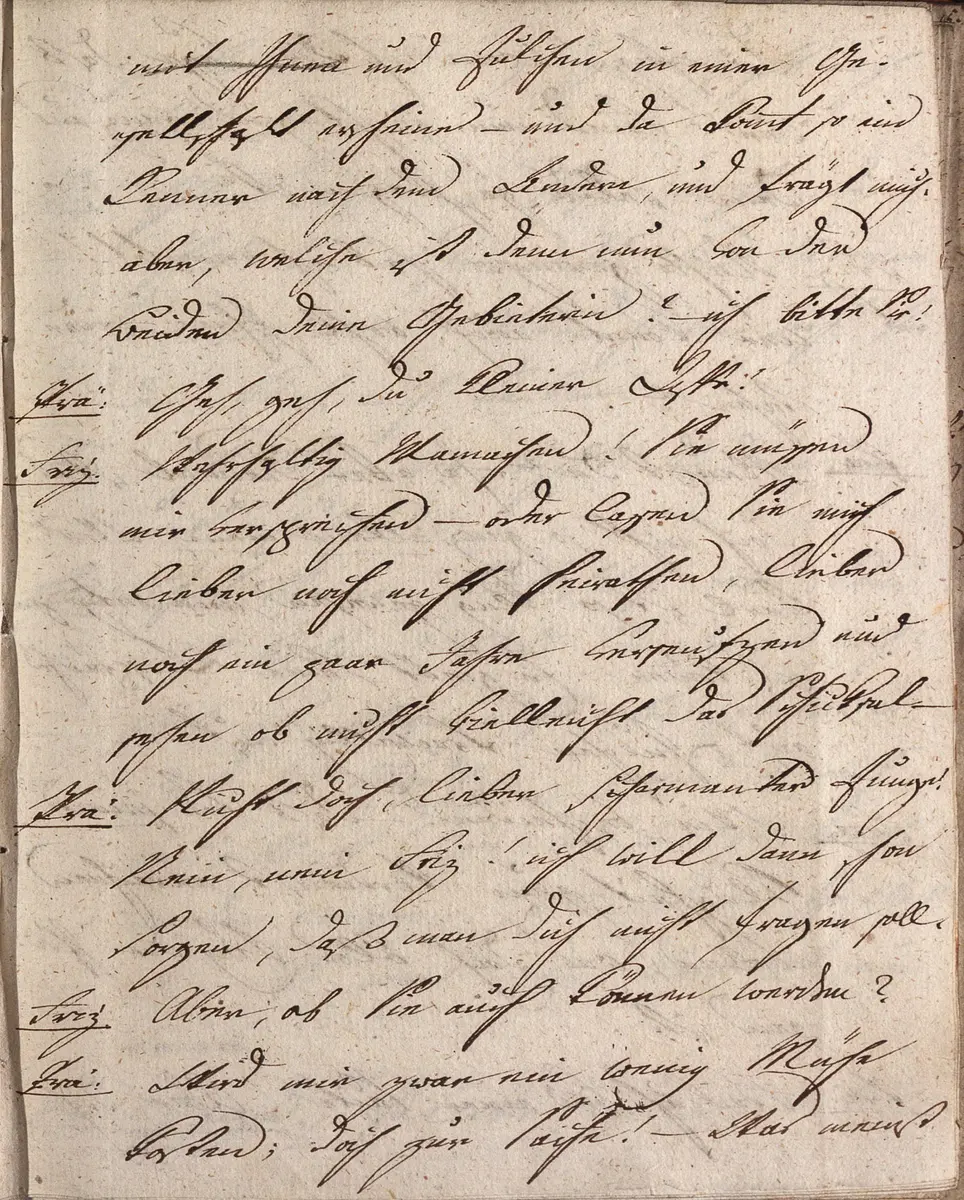 mit Ihnen und Julchen in einer Ge-
sellschaft erscheine – und da komt so ein
Kenner nach dem Andern, und frägt mich:
aber, welche ist denn nun von den
Beiden deine Gebieterin? – ich bitte Sie!
Prä: Geh, geh, du kleiner Affe!
Friz. Wahrhaftig Mamachen! Sie müßen
mir versprechen – oder laßen Sie mich
lieber noch nicht heirathen, lieber
noch ein paar Jahre verseufzen und
sehen ob nicht vielleicht das Schiksal –
Prä: Nicht doch, lieber scharmanter Junge!
Nein, nein Friz! ich will dann schon
sorgen, daß man dich nicht fragen soll.
Friz Aber, ob Sie auch können werden?
Prä: Wird mir zwar ein wenig Mühe
kosten; doch zur Sache! – Was meinst